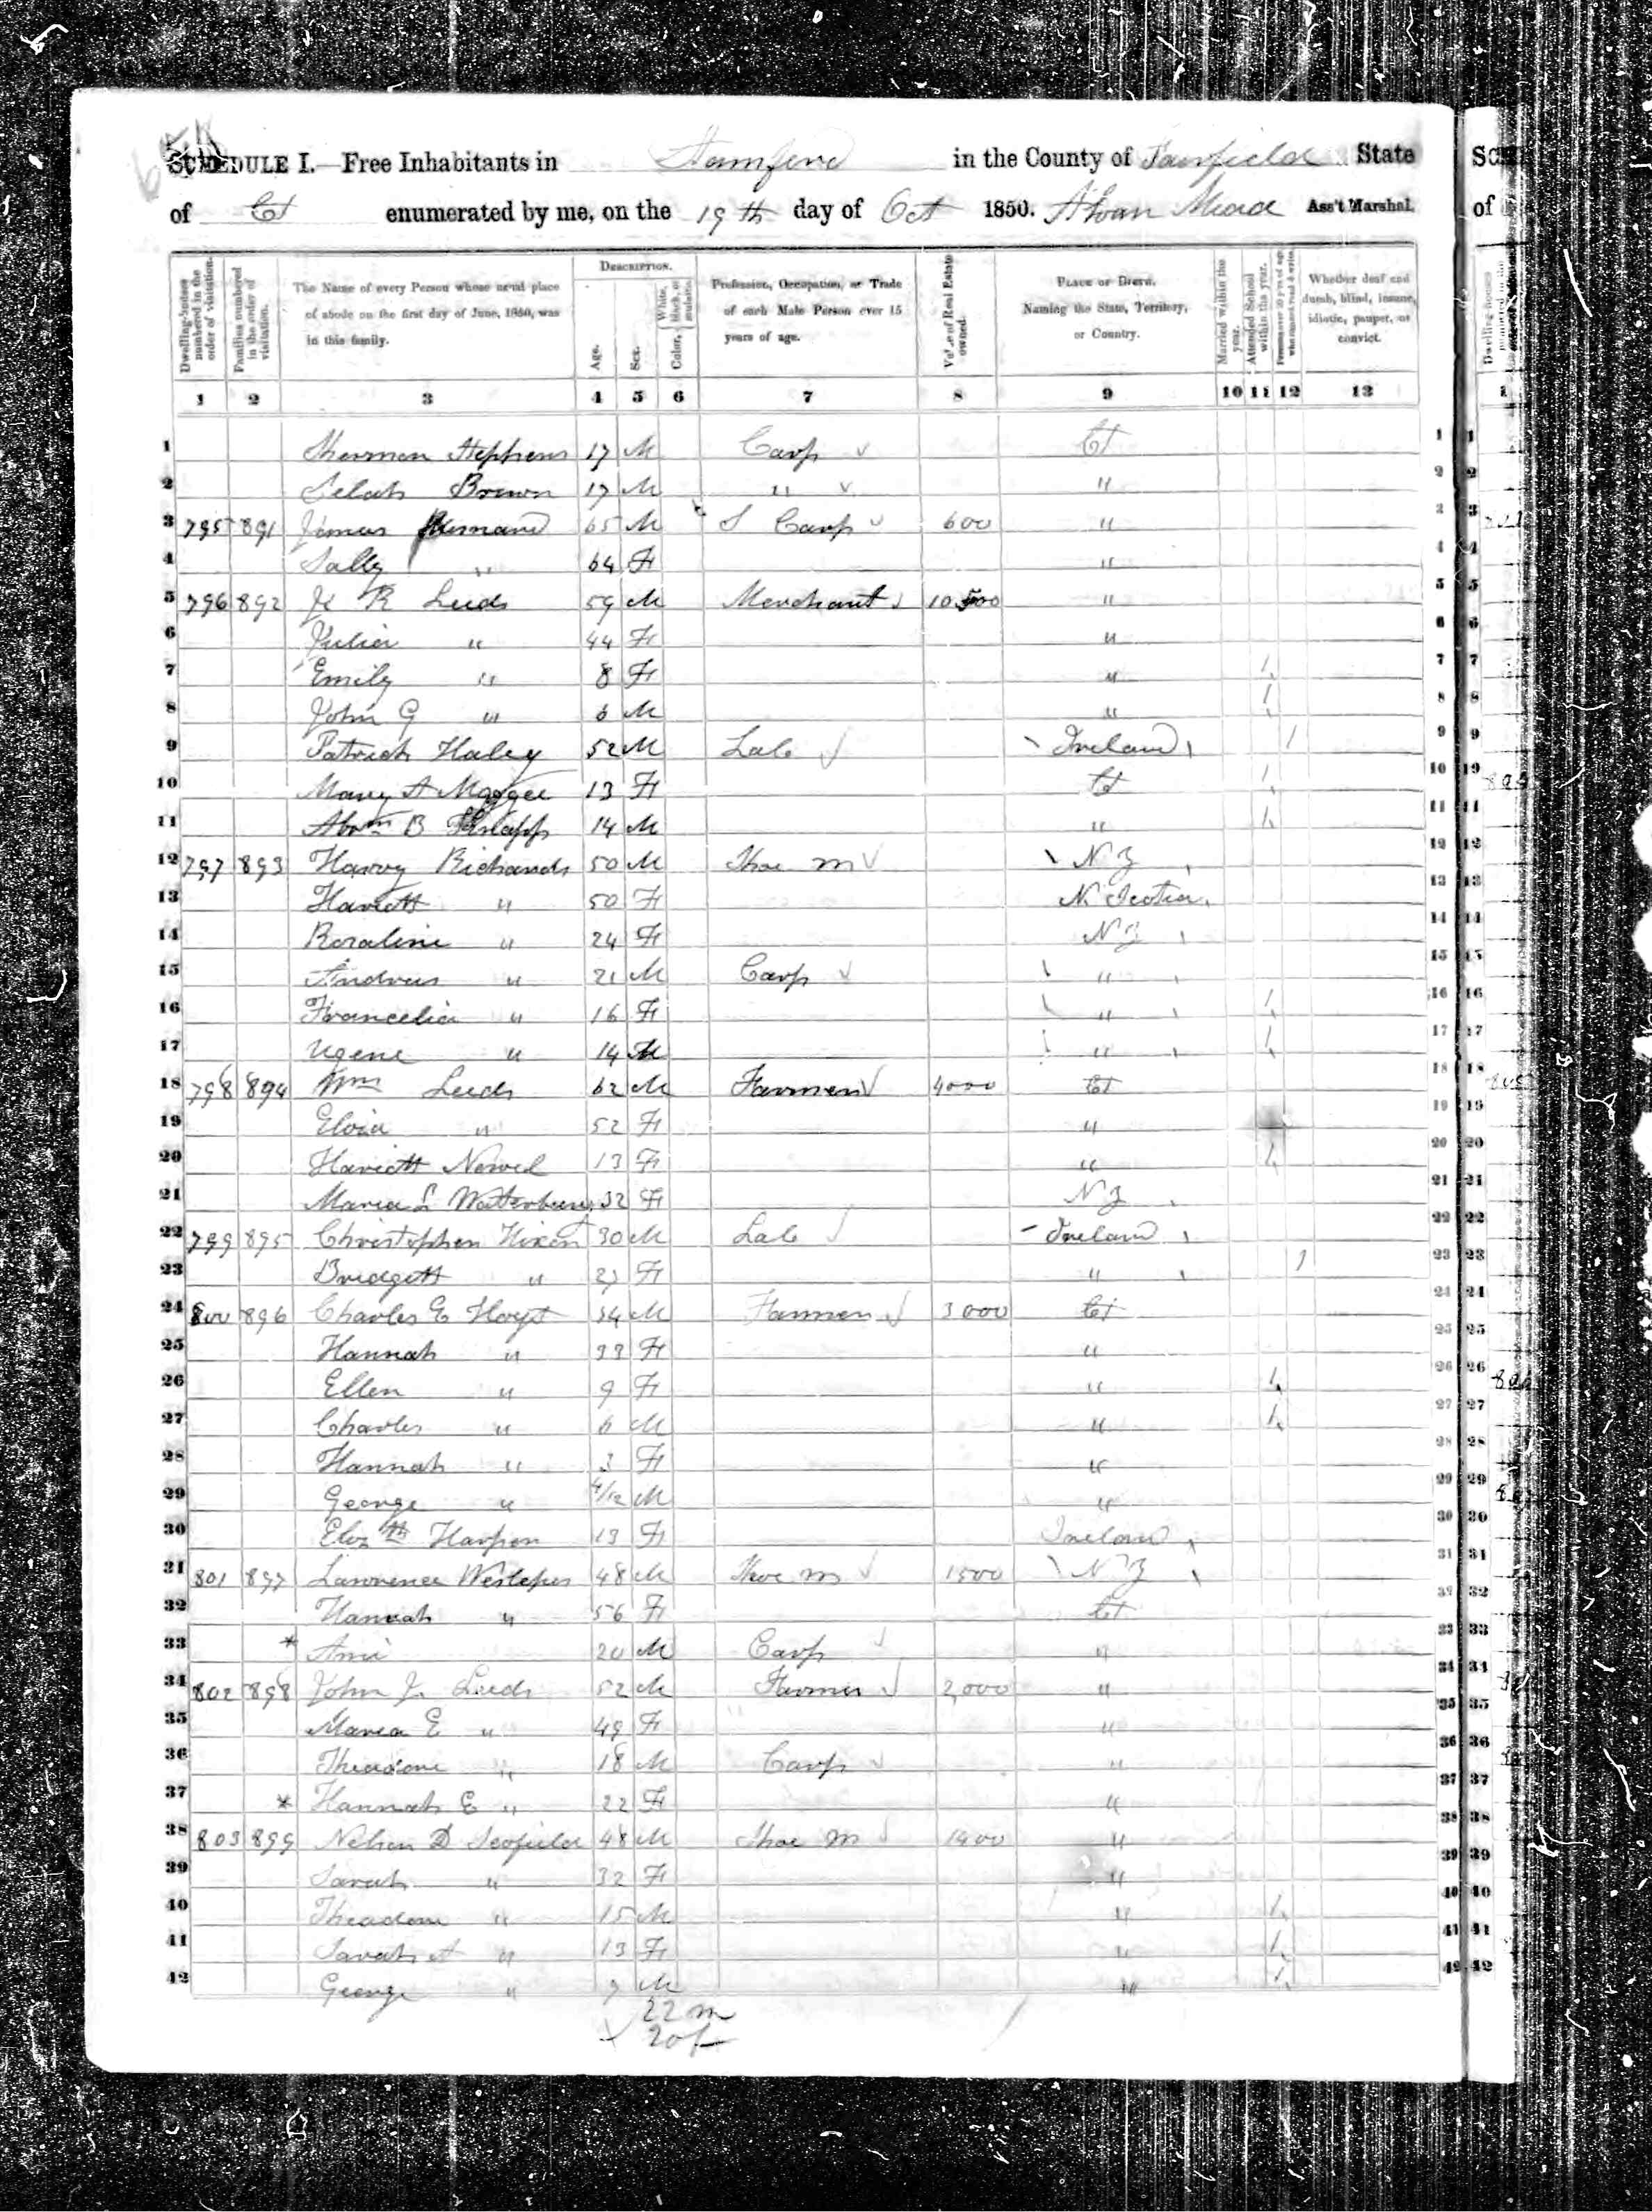 SCHEDULE I.—Free Inhabitants in Stamford in the County of Fairfield State
of Ct enumerated by me, on the 19th day of Oct 1850. Alvan Mead Ass't Marshal.
Dwelling-houses numbered in the order of visitation.
Families numbered in the order of visitation.
The Name of every Person whose usual place of abode on the first day of June, 1850, was in this family.
DESCRIPTION.
Age.
Sex.
Color, White, black, or mulatto.
Profession, Occupation, or Trade of each Male Person over 15 years of age.
Value of Real Estate owned.
PLACE OF BIRTH. Naming the State, Territory, or Country.
Married within the year.
Attended School within the year.
Persons over 20 y'rs of age who cannot read & write.
Whether deaf and dumb, blind, insane, idiotic, pauper, or convict.
1 2 3 4 5 6 7 8 9 10 11 12 13
1 Sherman Stephens 17 M Carp Ct
2 Selah Brown 17 M " "
3 795 891 James 65 M S Carp 600 "
4 Sally " 64 F "
5 796 892 J R Leeds 59 M Merchant 10,500 "
6 Julia " 44 F "
7 Emily " 8 F " 1
8 John G " 6 M " 1
9 Patrick Haley 52 M Lab Ireland 1
10 Mary A Magee 13 F Ct 1
11 Abrm B Knapp 14 M " 1
12 797 893 Harvy Richards 50 M Shoe m N Y
13 Hariett " 50 F N. Scotia
14 Roraline " 24 F N Y
15 Andrew " 21 M Carp "
16 Francelia " 16 F " 1
17 Ugene " 14 M " 1
18 798 894 Wm Leeds 62 M Farmer 4000 Ct
19 " 52 F "
20 Hariett Newel 13 F " 1
21 Maria L Waterbury 32 F N Y
22 799 895 Christopher Nixen 30 M Lab Ireland
23 Bridgett " 27 F " 1
24 800 896 Charles E Hoyt 34 M Farmer 3000 Ct
25 Hannah " 33 F "
26 Ellen " 9 F " 1
27 Charles " 6 M " 1
28 Hannah " 3 F "
29 George " /12 M "
30 Elizth Harper 13 F Ireland
31 801 897 Lawrence 48 M Shoe m 1500 N Y
32 Hannah " 56 F Ct
33 * Ami 20 M Carp "
34 802 898 John J. Leeds 52 M Farmer 2,000 "
35 Maria E " 49 F "
36 Theadore " 18 M Carp "
37 * Hannah E " 22 F "
38 803 899 Nelson D Scofield 48 M Shoe m 1400 "
39 Sarah " 32 F "
40 Theadore " 15 M " 1
41 Sarah A " 13 F " 1
42 George " 9 M " 1
22 m
20 f